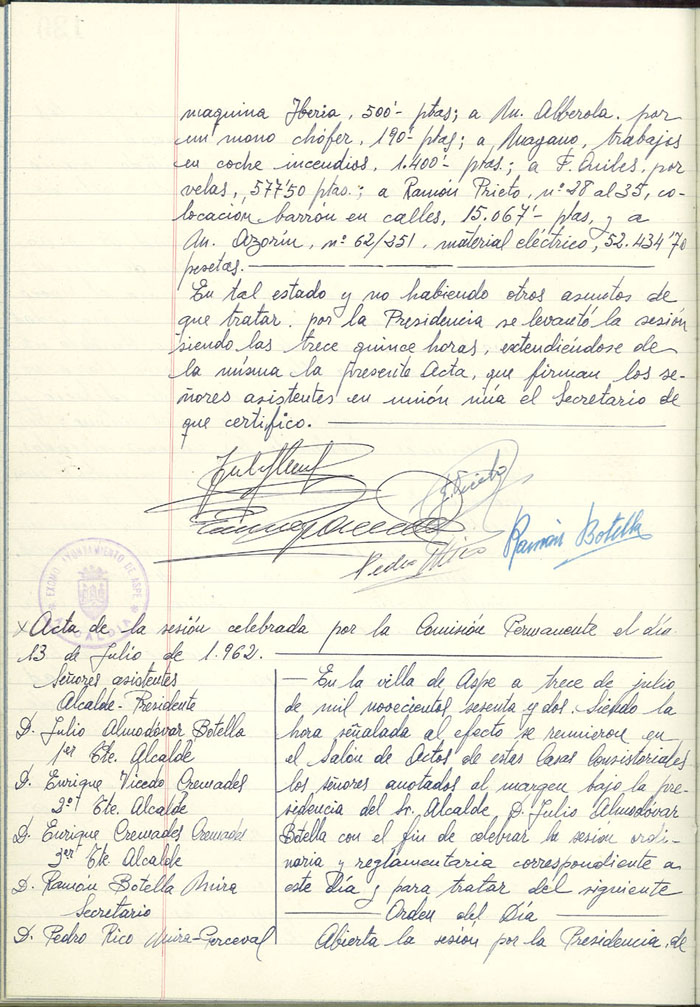 maquina Iberia, 500'- ptas; a An. Alberola. por
un mono chófer, 190'- ptas; a Magano, trabajos
en coche incendios, 1.400'- ptas.; a F. Aviles, por
velas, 577'50 ptas.; a Ramón Prieto, nº 28 al 35, co-
locación barrón en calles, 15.067'- ptas, y a
An. Azorín, nº 62/351, material eléctrico, 52.434'70
pesetas.
En tal estado y no habiendo otros asuntos de
que tratar. por la Presidencia se levantó la sesión
siendo las trece quince horas, extendiéndose de
la misma la presente Acta, que firman los se-
ñores asistentes en unión mía el Secretario de
que certifico.
Ramón Botella
Pedro Rico
EXCMO. AYUNTAMIENTO DE ASPE
ALCALDIA
Acta de la sesión celebrada por la Comisión Permanente el día
13 de Julio de 1.962.
Señores asistentes
Alcalde-Presidente
D. Julio Almodóvar Botella
1er Tte. Alcalde
D. Enrique Vicedo Cremades
2º Tte. Alcalde
D. Enrique Cremades Cremades
3er Tte Alcalde
D. Ramón Botella Mira
Secretario
D. Pedro Rico Mira-Perceval
— En la villa de Aspe a trece de julio
de mil novecientos sesenta y dos. Siendo la
hora señalada al efecto se reunieron en
el Salón de Actos de estas Casas Consistoriales
los señores anotados al margen bajo la pre-
sidencia del Sr. Alcalde D. Julio Almodóvar
Botella con el fin de celebrar la sesión ordi-
naria y reglamentaria correspondiente a
este día y para tratar del siguiente
Orden del Día
Abierta la sesión por la Presidencia, de